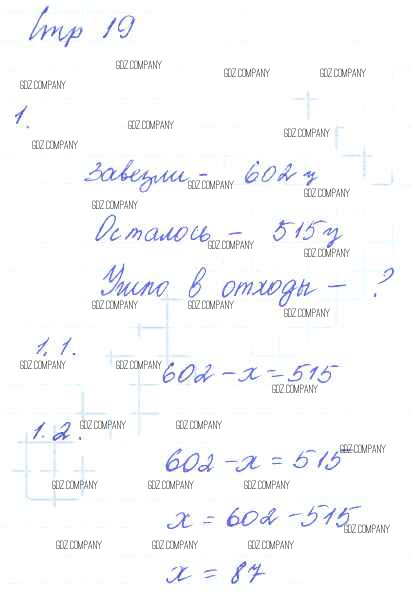 Стр 19
GDZ.COMPANY
GDZ.COMPANY GDZ.COMPANY
GDZ.COMPANY
1.
GDZ.COMPANY
GDZ.COMPANY
GDZ.COMPANY
Завезли - 602 ц
GDZ.COMPANY
GDZ.COMPANY
GDZ.COMPANY
Осталось - 515 ц
GDZ.COMPANY
GDZ.COMPANY
Ушло в отходы - ?
GDZ.COMPANY GDZ.COMPANY
GDZ.COMPANY
1.1.
GDZ.COMPANY GDZ.COMPANY
602 - x = 515
GDZ.COMPANY
1.2.
GDZ.COMPANY GDZ.COMPANY
GDZ.COMPANY
602 - x = 515
GDZ.COMPANY GDZ.COMPANY GDZ.COMPANY
x = 602 - 515
GDZ.COMPANY
GDZ.COMPANY GDZ.COMPANY GDZ.COMPANY
x = 87